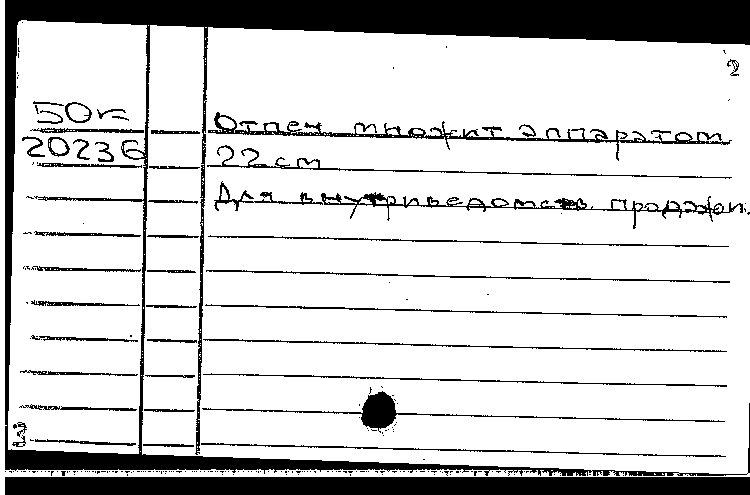 2
50к
Отпеч множит аппаратом
20236
22 см
Для внутриведомств. продажи.